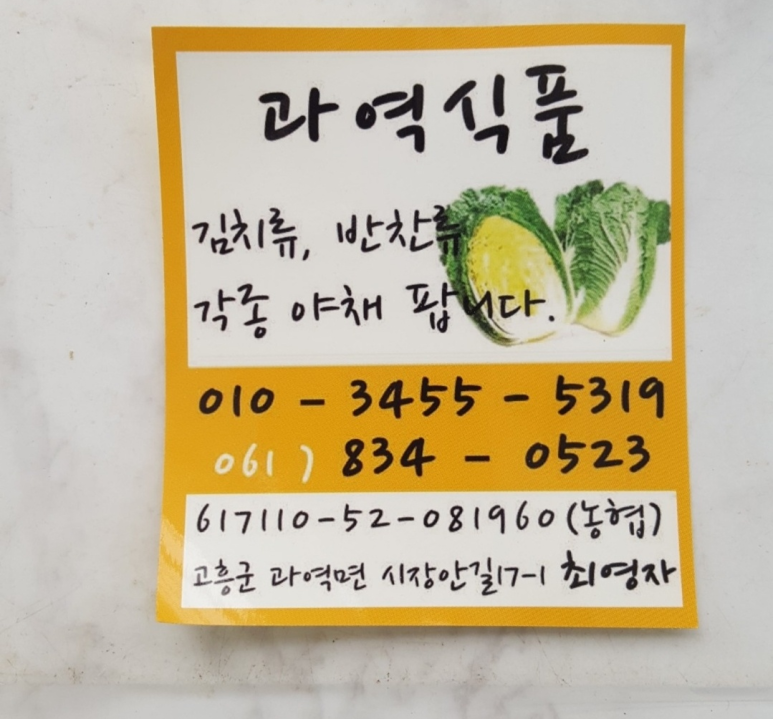 과역식품
김치류, 반찬류
각종 야채 팝니다.
010 - 3455 - 5319
061) 834 - 0523
617110-52-081960(농협)
고흥군 과역면 시장안길17-1 최영자